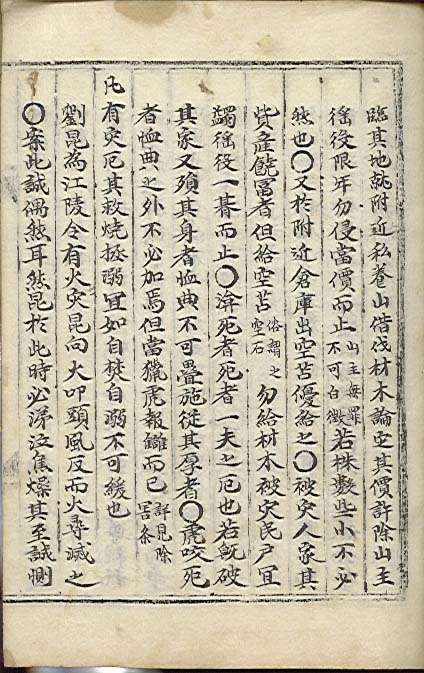 臨其地就附近私養山借伐材木論定其價許除山主
徭役限年勿侵當價而止山主毎罪不可白徵若株數些小不必
然也○又於附近倉庫出空苫優給之○被灾人家其
貲産饒冨者但給空苫俗謂之空石勿給材木被灾民戶宜
蠲徭役一朞而止○渰死者死者一夫之厄也若旣破
其家又殞其身者恤典不可疊施從其厚者○虎咬死
者恤典之外不必加焉但當獵虎報讎而已詳見除害条
凡有灾厄其救燒拯溺宜如自焚自溺不可緩也
劉昆為江陵令有火灾昆向火叩頭風反而火尋滅之
○案此誠偶然耳然昆於此時必涕泣焦燥其至誠惻